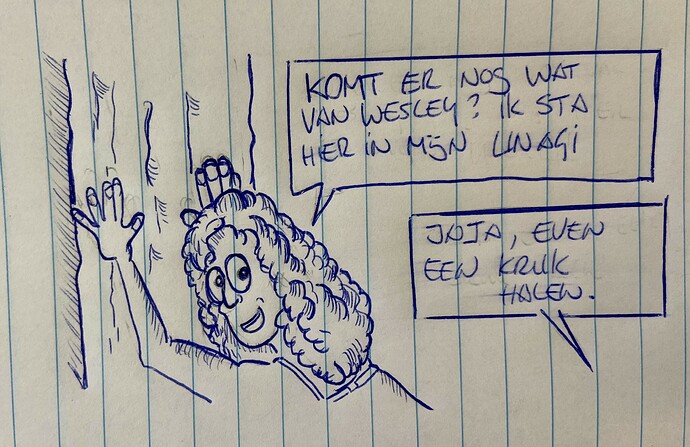 KOMT ER NOG WAT
VAN WESLEY? IK STA
HIER IN MIJN UNAGI
JAJA, EVEN
EEN KRUK
HALEN.